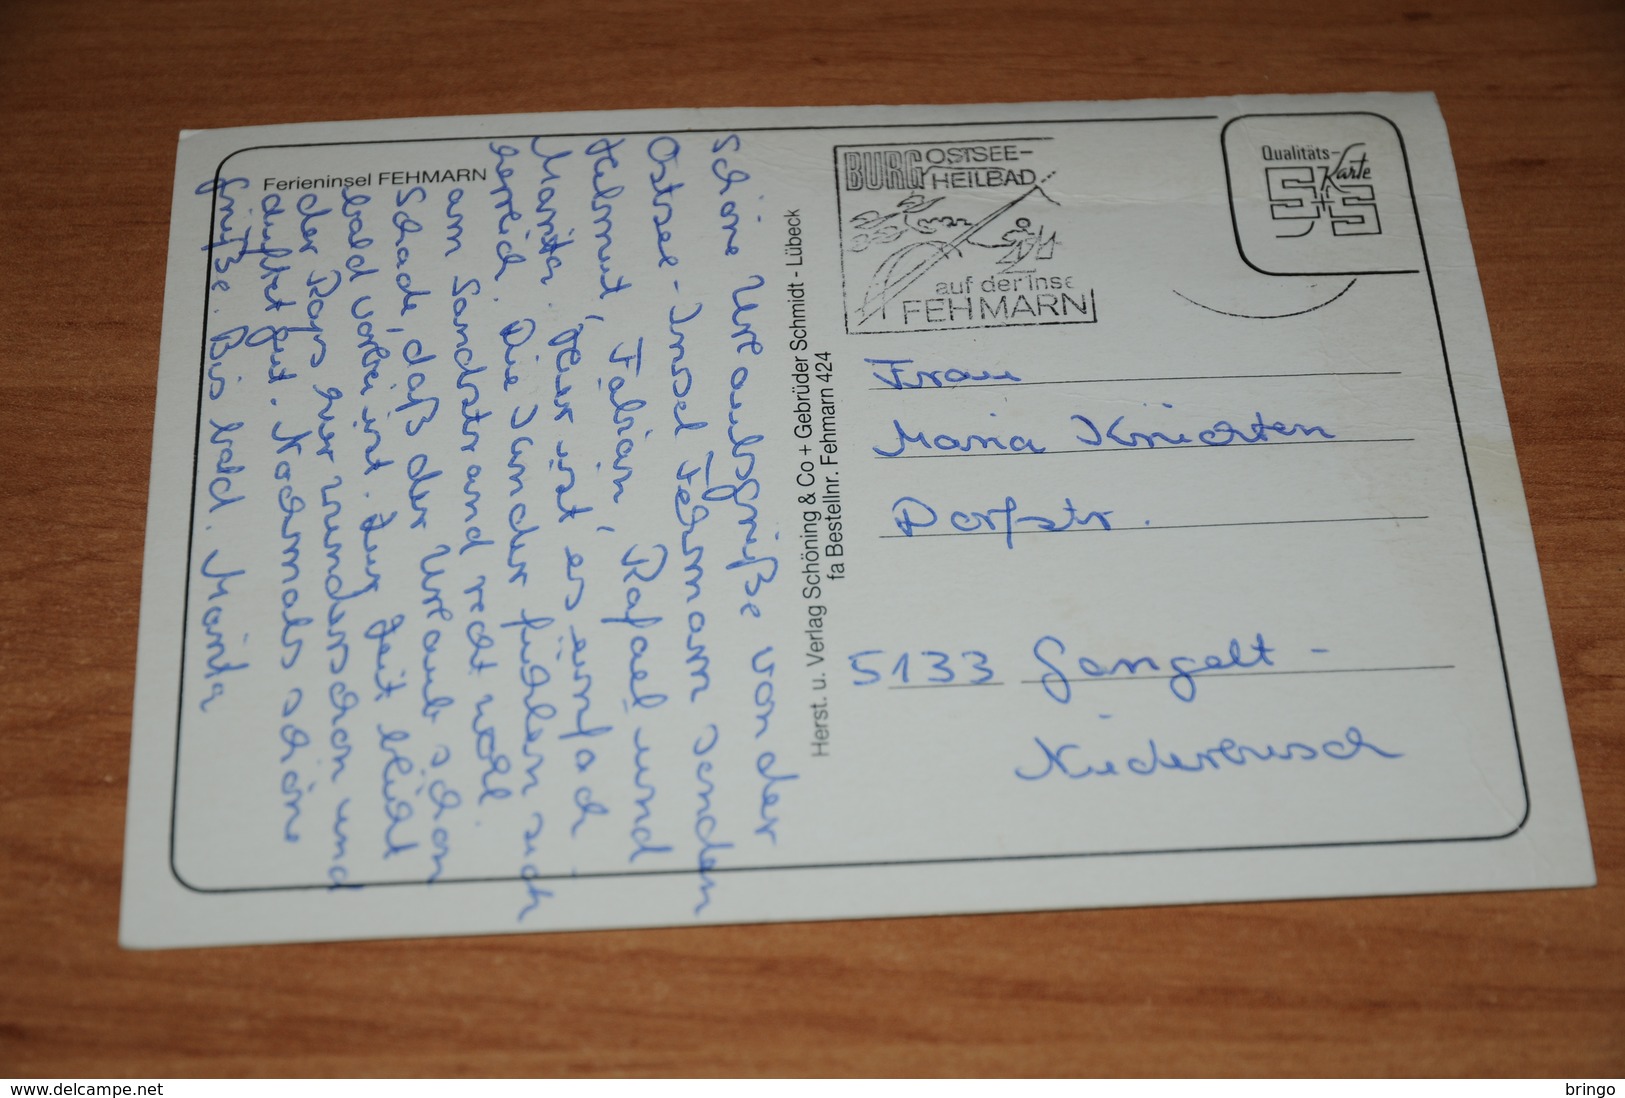 Ferieninsel FEHMARN
Schöne Urlaubsgrüße von der
Ostsee-Insel Fehmarn senden
Helmut, Fabian, Rafael und
Marita. Hier ist es einfach
herrlich. Die Kinder fühlen sich
am Sandstrand recht wohl.
Schade, daß der Urlaub schon
bald vorbei ist. Zur Zeit blüht
der Raps hier wunderschön und
duftet gut. Nochmals schöne
Grüße. Bis bald. Marita
Herst. u. Verlag Schöning & Co + Gebrüder Schmidt - Lübeck
fa Bestellnr. Fehmarn 424
BURG OSTSEE-
HEILBAD
auf der Inse
FEHMARN
Qualitäts-
Karte
S+S
Frau
Maria
Dorfstr.
5133 Gangelt-
Niederbusch
delcampe.net
bringo